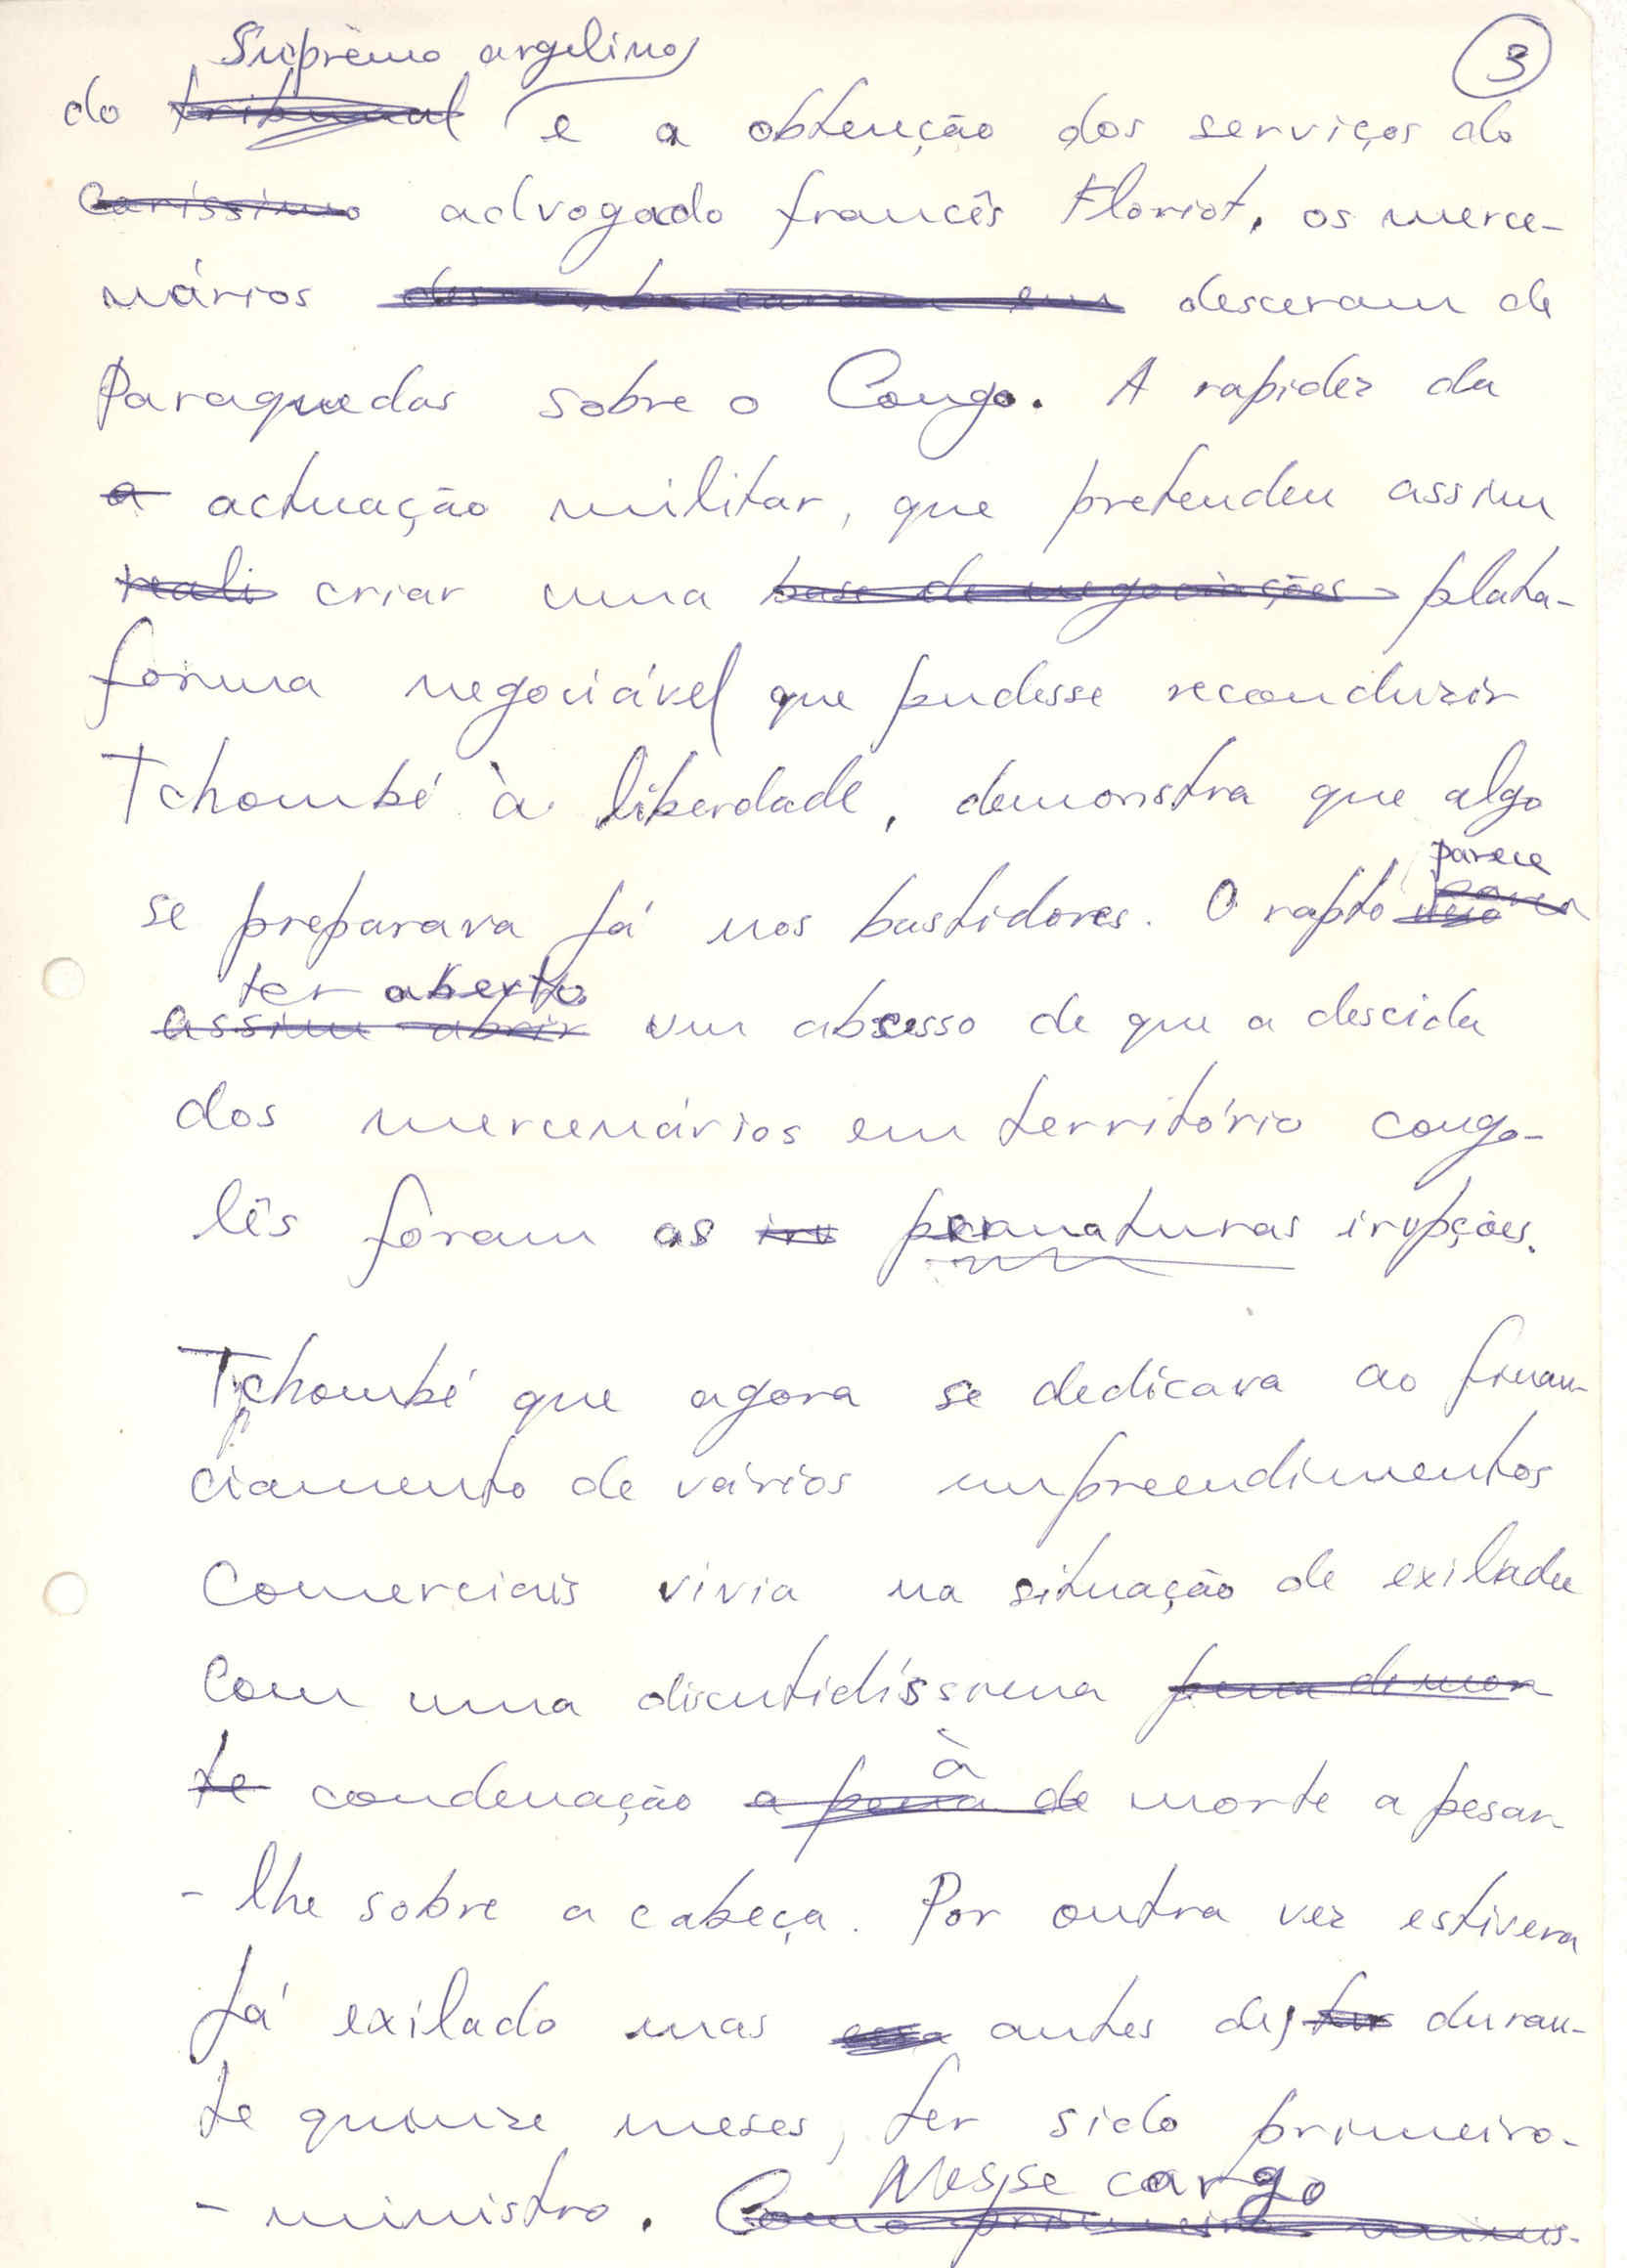 3
Suprêmo argelino,
do ~~tribunal~~ e a obtenção dos serviços do
~~caríssimo~~ advogado francês Floriot, os merce-
nários ~~desembarcaram em~~ desceram de
Paraquedas sobre o Congo. A rapidez da
~~a~~ actuação militar, que pretendeu assim
~~reali~~ criar uma ~~base de negociações~~ plata-
forma negociável que pudesse reconduzir
Tchombé à liberdade, demonstra que algo
parece
se preparava já nos bastidores. O rapto
ter aberto
~~assim abrir~~ um abscesso de que a descida
dos mercenários em território congo-
lês foram as ~~iru~~ prematuras irupções.
Tchombé que agora se dedicava ao finan-
ciamento de vários empreendimentos
comerciais vivia na situação de exilado
com uma discutidíssima ~~pena de mor~~
à
~~te~~ condenação ~~a pena de~~ morte a pesar-
-lhe sobre a cabeça. Por outra vez estivera
já exilado mas ~~essa~~ antes de, ~~ter~~ duran-
te quinze meses, ter sido primeiro-
Nesse cargo
-ministro. ~~Como primeiro minis-~~